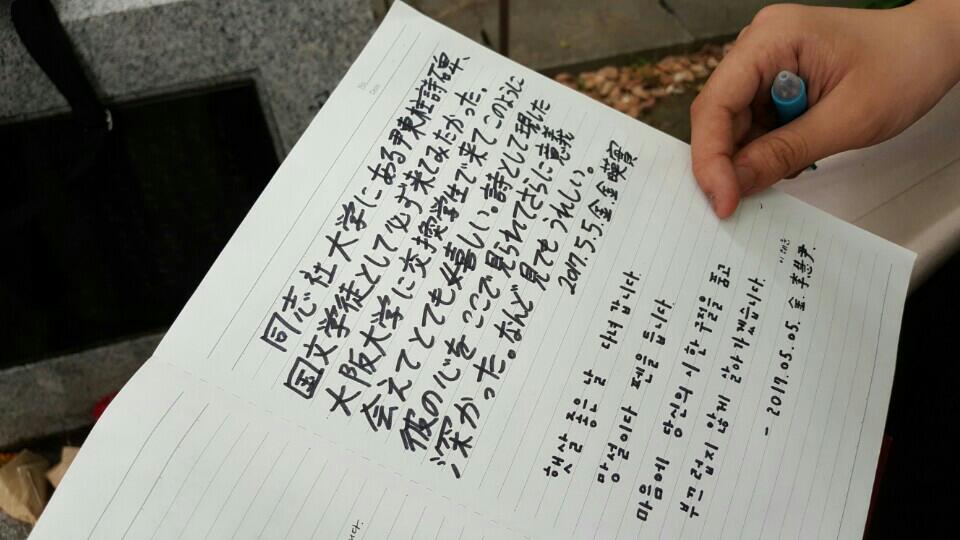 No.
Date
同志社大学にある尹東柱詩石碑、
国文学徒として必ず来てみたかった。
大阪大学に交換学生で来てこのように
会えてとても嬉しい。詩として現た
彼の心をここで見られてさらに意義
深かった。なんど見でもうれしい。
2017.5.5.金 金
햇살 좋은 날 다녀 갑니다
망설이다 펜을 듭니다.
마음에 당신의 시 한 구절을 품고
부끄럽지 않게 살아가겠습니다.
- 2017.05.05. 金. 李
다.